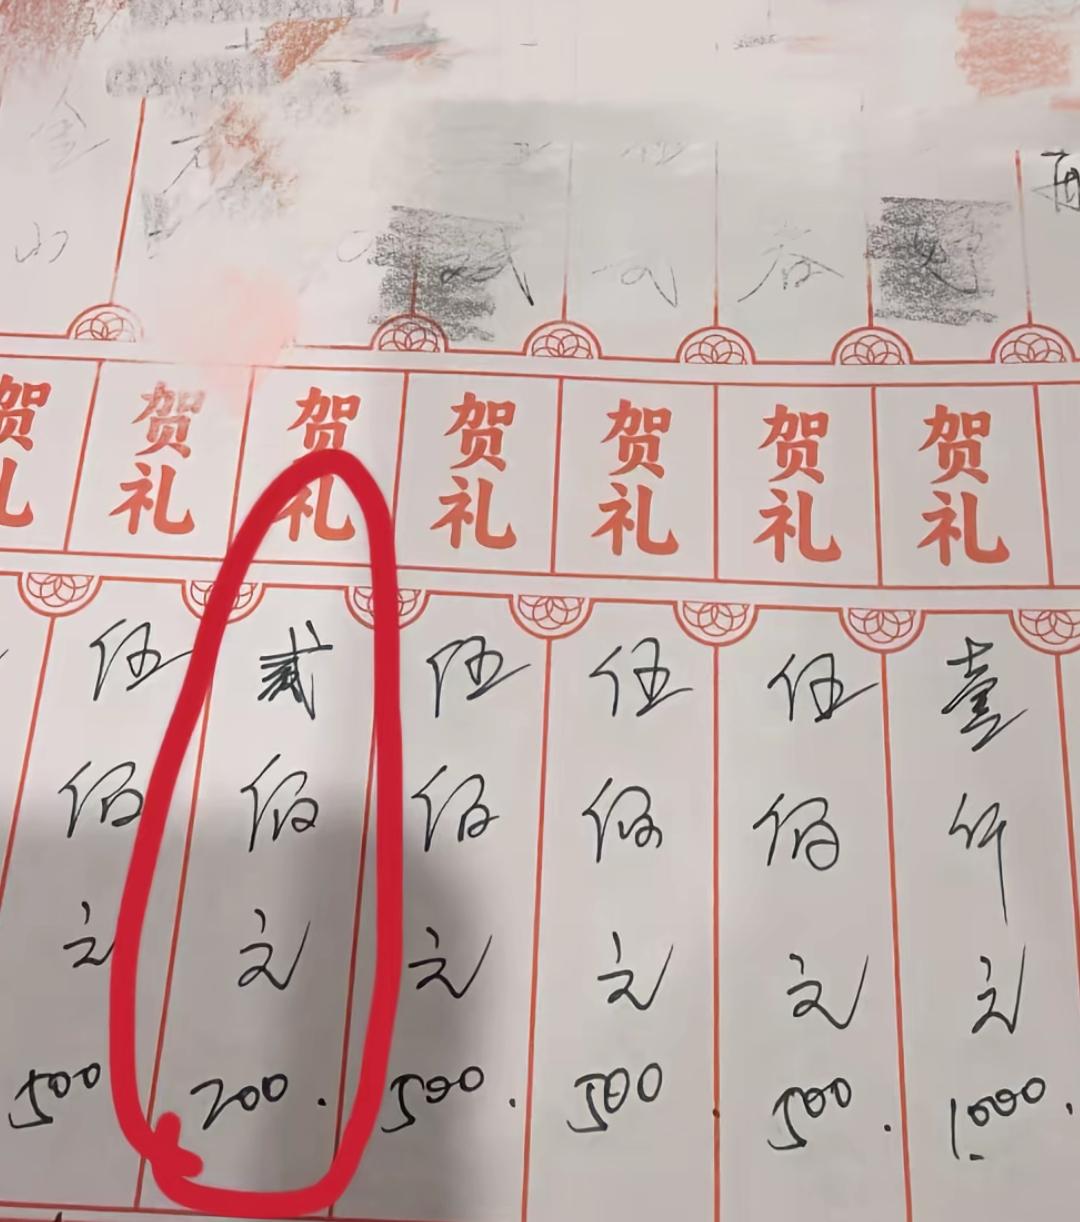 贺礼
贺礼
贺礼
贺礼
贺礼
贺礼
贺礼
壹仟元
1000.
伍佰元
500.
伍佰元
500
伍佰元
500.
贰佰元
200.
伍佰元
500